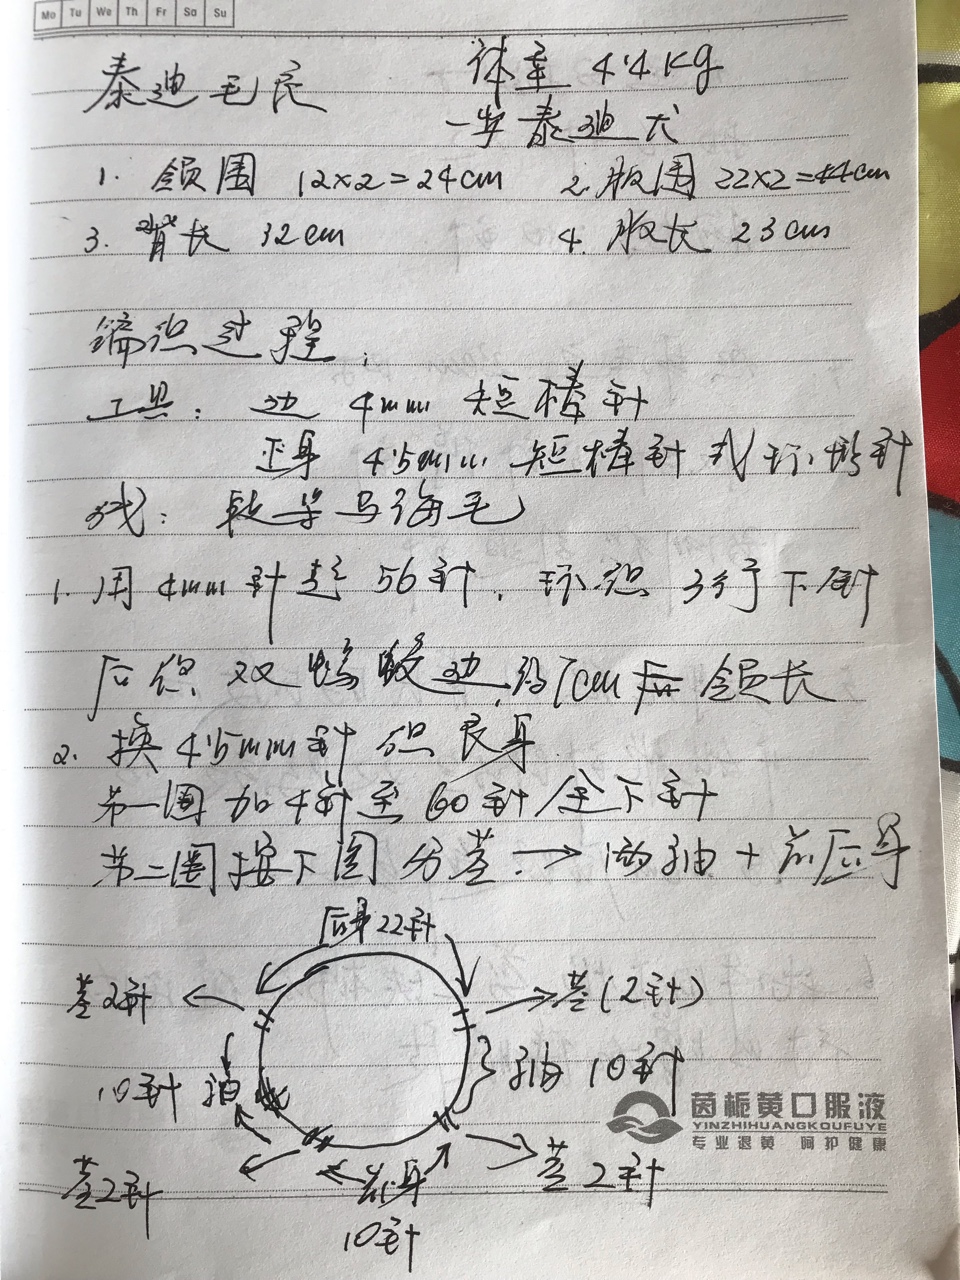 Mo Tu We Th Fr Sa Su
泰迪毛衣
体重 4.4kg
一岁泰迪犬
1. 领围 12×2=24cm 2. 腹围 22×2=44cm
3. 背长 32cm 4. 腹长 23cm
编织过程:
工具: 边 4mm 短棒针
正身 4.5mm 短棒针或环形针
线: 马海毛
1. 用 4mm 针起 56针, 环织 3行下针
后织双螺纹边, 约7cm后领长
2. 换 4.5mm针织衣身
第一圈加4针至60针/全下针
第二圈按下图分茎: → 两袖+前后身
后身22针
茎2针
茎(2针)
10针 袖
袖 10针
茎2针
前身
10针
茎2针
茵栀黄口服液
YINZHIHUANGKOUFUYE
专业退黄 呵护健康